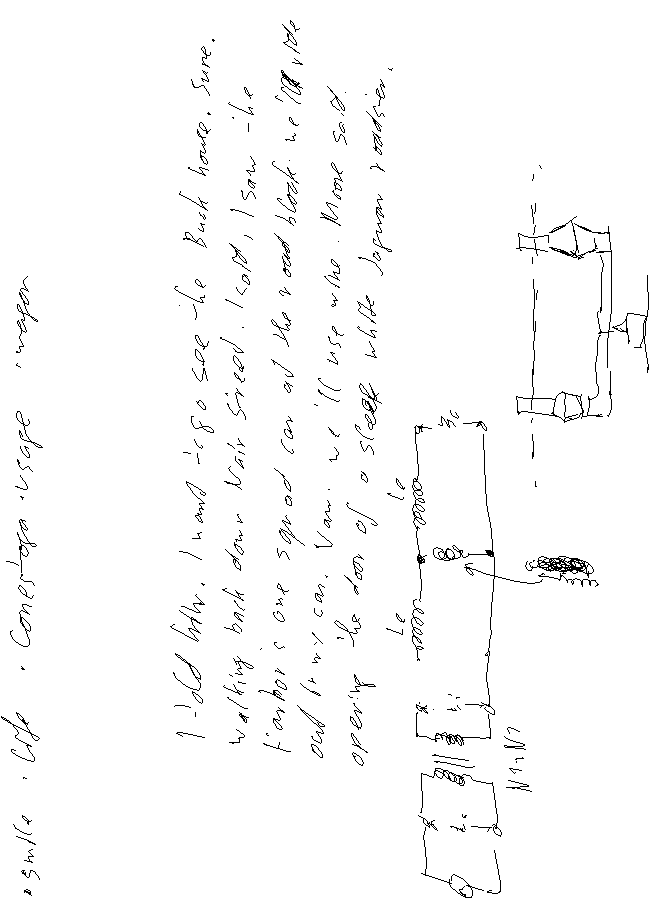 smile · life · Conestoga · usage · wagon
I told him. I want to go see the Buck house. Sure.
walking back down Main Street. I said, I saw the
Harbor's one squad car at the road block. we'll ride
out in my car. Van. we'll use mine. Moore said.
opening the door of a sleek white Jaguar roadster.
Le Le
N1:N1